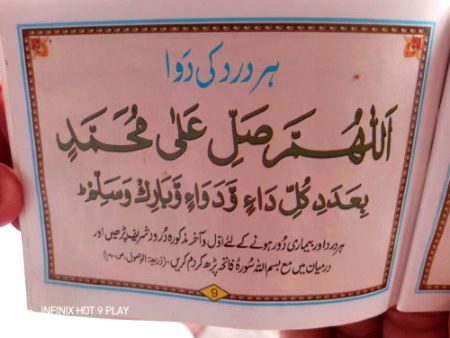 ہر درد کی دَوا
اَللّٰهُمَّ صَلِّ عَلٰی مُحَمَّدٍ
بِعَدَدِ كُلِّ دَاءٍ وَّدَوَاءٍ وَّبَارِكْ وَسَلِّمْ
ہر درد اور بیماری دُور ہونے کے لئے اوّل و آخر مذکورہ دُرود شریف پڑھیں اور
درمیان میں مع بسم اللہ سُورۂ فاتحہ پڑھ کر دم کریں۔ (ذریعۃ الوصول، ص
9
INFINIX HOT 9 PLAY